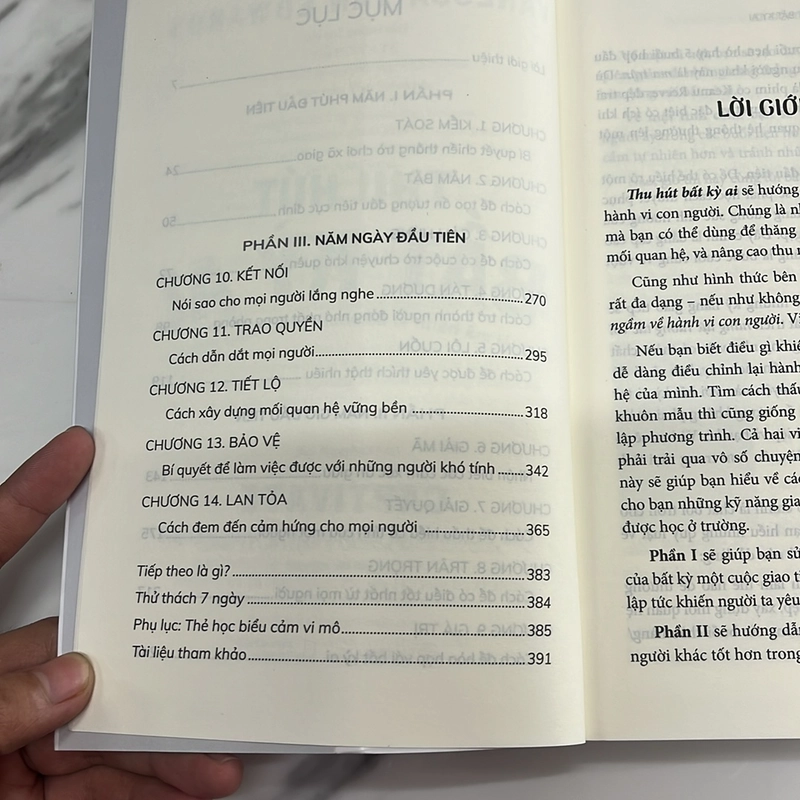 PHẦN III. NĂM NGÀY ĐẦU TIÊN
CHƯƠNG 10. KẾT NỐI
Nói sao cho mọi người lắng nghe 270
CHƯƠNG 11. TRAO QUYỀN
Cách dẫn dắt mọi người 295
CHƯƠNG 12. TIẾT LỘ
Cách xây dựng mối quan hệ vững bền 318
CHƯƠNG 13. BẢO VỆ
Bí quyết để làm việc được với những người khó tính 342
CHƯƠNG 14. LAN TỎA
Cách đem đến cảm hứng cho mọi người 365
Tiếp theo là gì? 383
Thử thách 7 ngày 384
Phụ lục: Thẻ học biểu cảm vi mô 385
Tài liệu tham khảo 391
LỜI GIỚI
Thu hút bất kỳ ai sẽ hướng
hành vi con người. Chúng là
mà bạn có thể dùng để thăng
mối quan hệ, và nâng cao thu
Cũng như hình thức bên
rất đa dạng – nếu như không
ngẫm về hành vi con người.
Nếu bạn biết điều gì
dễ dàng điều chỉnh lại hành
hệ của mình. Tìm cách thấu
khuôn mẫu thì cũng giống
lập phương trình. Cả hai
phải trải qua vô số chuyện
này sẽ giúp bạn hiểu về
cho bạn những kỹ năng
được học ở trường.
Phần I sẽ giúp bạn
của bất kỳ một cuộc giao
lập tức khiến người ta yêu
Phần II sẽ hướng dẫn
người khác tốt hơn trong